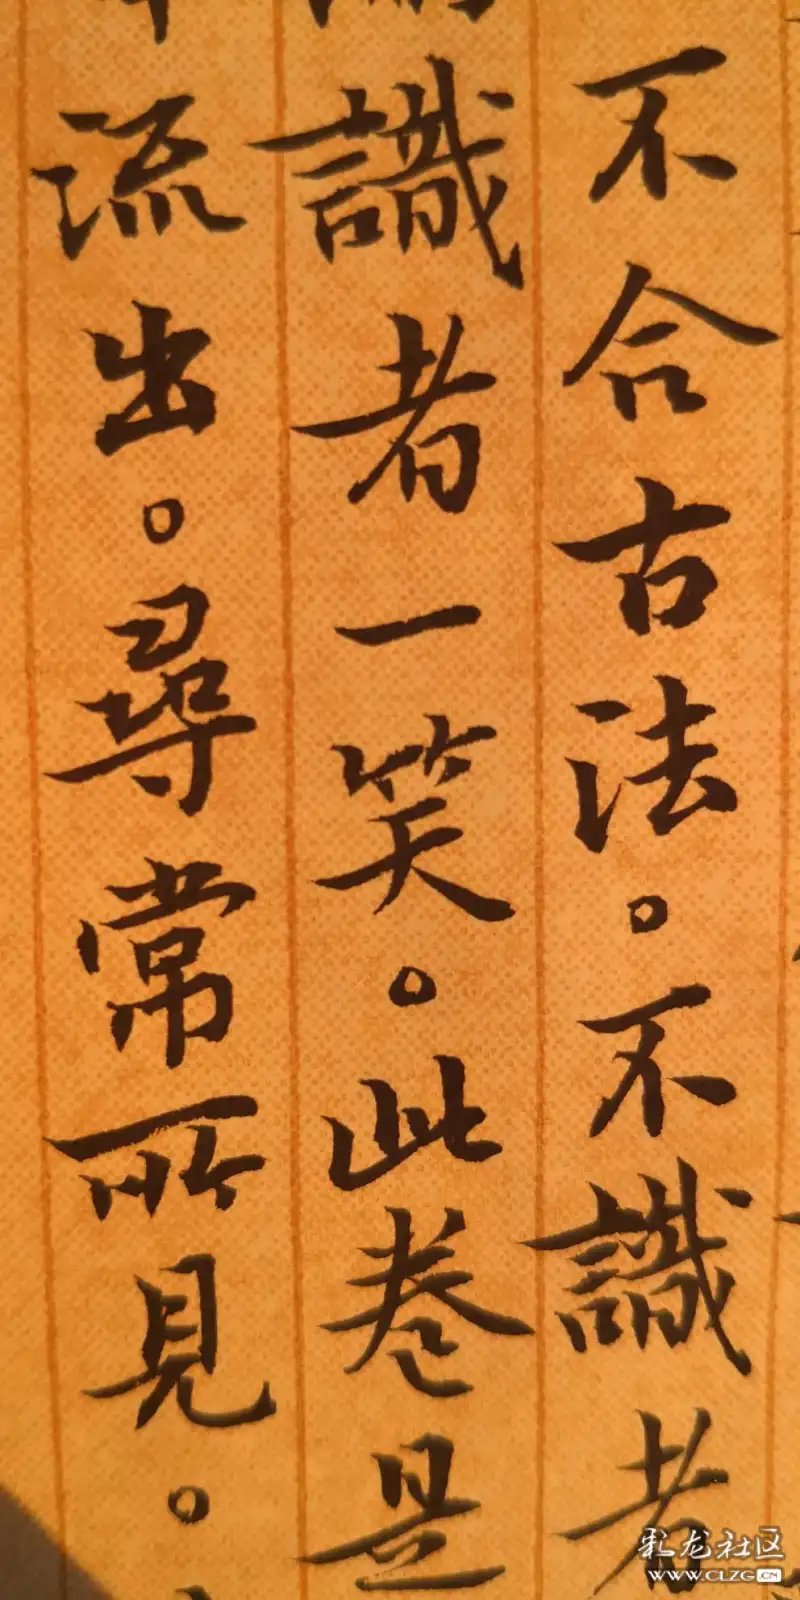 不合古法。不識者
識者一笑。此卷是
流出。尋常所見。
彩龙社区
WWW.CLZG.CN